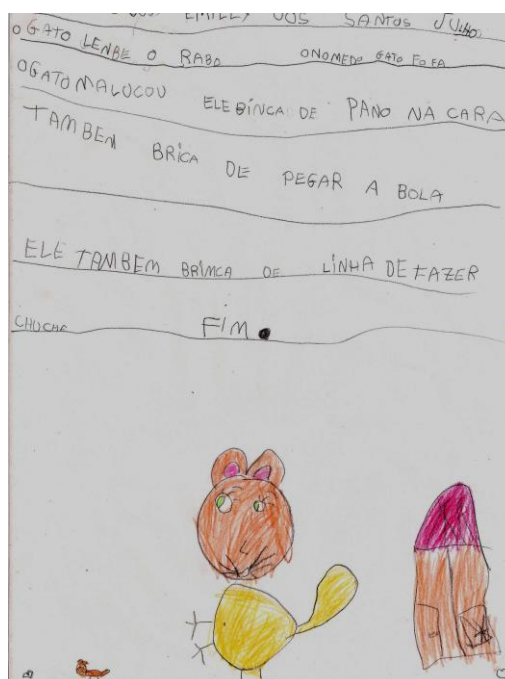 EMILLY DOS SANTOS
O GATO LENBE O RABO ONOMEDO GATO FOFA
OGATOMALUCOU ELE BINCA DE PANO NA CARA
TAMBEM BRICA DE PEGAR A BOLA
ELE TAMBEM BRINCA DE LINHA DE FAZER
CHUCHE FIM.